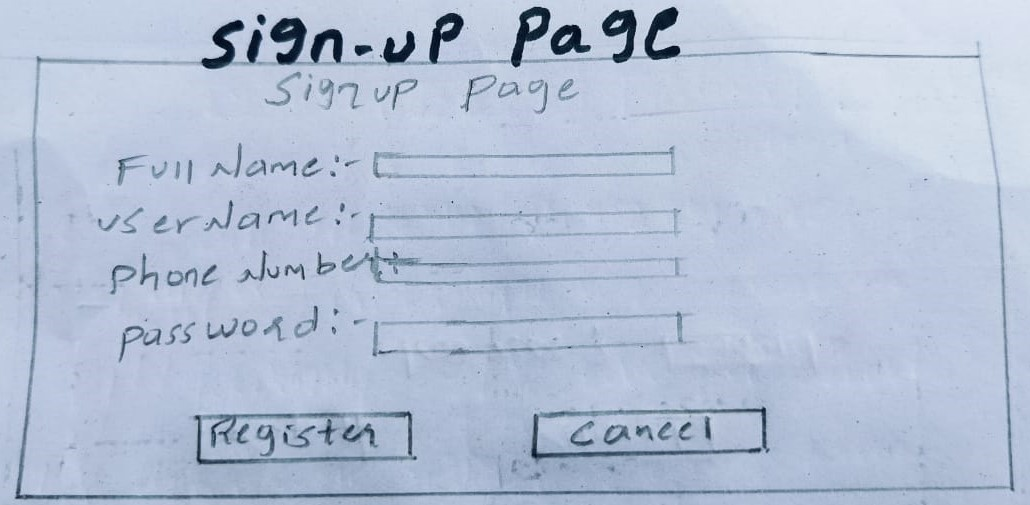 Sign-up Page
Signup Page
Full Name:-
userName:-
phone Number:-
password:-
Register
cancel